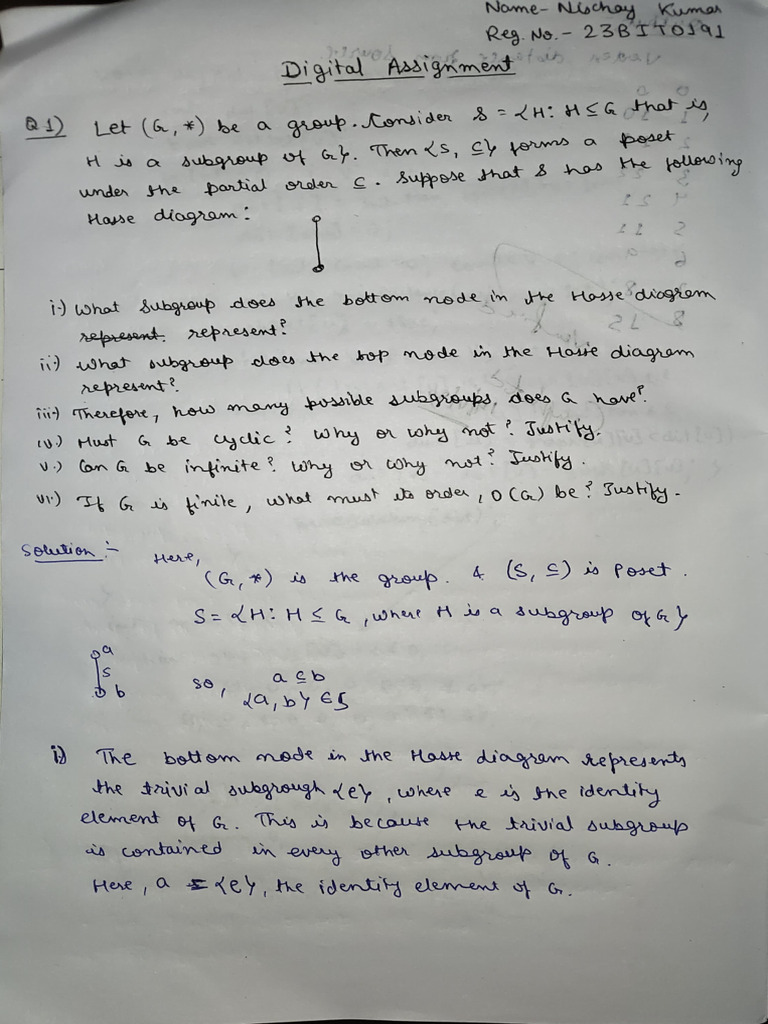 Name- Nischay Kumar
Reg. No. - 23BIT0191
Digital Assignment
Q1) Let (G, *) be a group. Consider S = {H: H ≤ G that is,
H is a subgroup of G}. Then {S, ⊆} forms a poset
under the partial order ⊆. Suppose that S has the following
Hasse diagram:
i.) What subgroup does the bottom node in the Hasse diagram
represent. represent?
ii.) What subgroup does the top node in the Hasse diagram
represent?
iii.) Therefore, how many possible subgroups, does G have?
iv.) Must G be cyclic? Why or why not? Justify.
v.) Can G be infinite? Why or why not? Justify.
vi.) If G is finite, what must its order, O(G) be? Justify.
Solution :- Here,
(G, *) is the group. & (S, ⊆) is Poset.
S = {H: H ≤ G, where H is a subgroup of G}
a
S
b
so, a ⊆ b
{a, b} ∈ S
i) The bottom node in the Hasse diagram represents
the trivial subgrough {e}, where e is the identity
element of G. This is because the trivial subgroup
is contained in every other subgroup of G.
Here, a = {e}, the identity element of G.